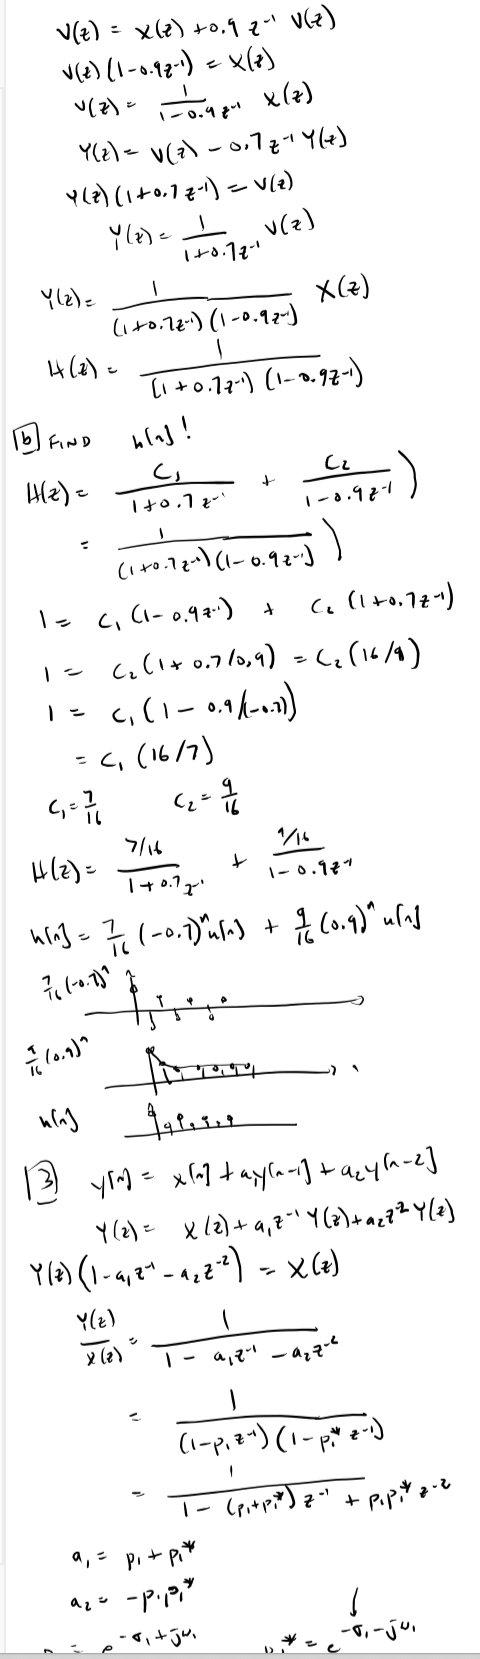 V(z) = X(z) + 0.9 z⁻¹ V(z)
V(z) (1-0.9z⁻¹) = X(z)
V(z) = 1/(1-0.9z⁻¹) X(z)
Y(z) = V(z) - 0.7z⁻¹ Y(z)
Y(z) (1+0.7z⁻¹) = V(z)
Y(z) = 1/(1+0.7z⁻¹) V(z)
Y(z) = 1/((1+0.7z⁻¹)(1-0.9z⁻¹)) X(z)
H(z) = 1/((1+0.7z⁻¹)(1-0.9z⁻¹))
b] FIND h[n]!
H(z) = C₁/(1+0.7z⁻¹) + C₂/(1-0.9z⁻¹) )
= 1/((1+0.7z⁻¹)(1-0.9z⁻¹)) )
1 = C₁(1-0.9z⁻¹) + C₂(1+0.7z⁻¹)
1 = C₂(1+0.7/0.9) = C₂(16/9)
1 = C₁(1-0.9/(-0.7))
= C₁(16/7)
C₁ = 7/16 C₂ = 9/16
H(z) = (7/16)/(1+0.7z⁻¹) + (9/16)/(1-0.9z⁻¹)
h[n] = 7/16 (-0.7)ⁿ u[n] + 9/16 (0.9)ⁿ u[n]
7/16 (-0.7)ⁿ
9/16 (0.9)ⁿ
h[n]
13) y[n] = x[n] + a₁y[n-1] + a₂y[n-2]
Y(z) = X(z) + a₁z⁻¹ Y(z) + a₂z⁻² Y(z)
Y(z) (1-a₁z⁻¹ - a₂z⁻²) = X(z)
Y(z)/X(z) = 1/(1 - a₁z⁻¹ - a₂z⁻²)
= 1/((1-p₁z⁻¹)(1-p₁* z⁻¹))
= 1/(1-(p₁+p₁*)z⁻¹ + p₁p₁* z⁻²)
a₁ = p₁ + p₁*
a₂ = -p₁p₁*
= e^(-σ₁+jω₁) p₁* = e^(-σ₁-jω₁)